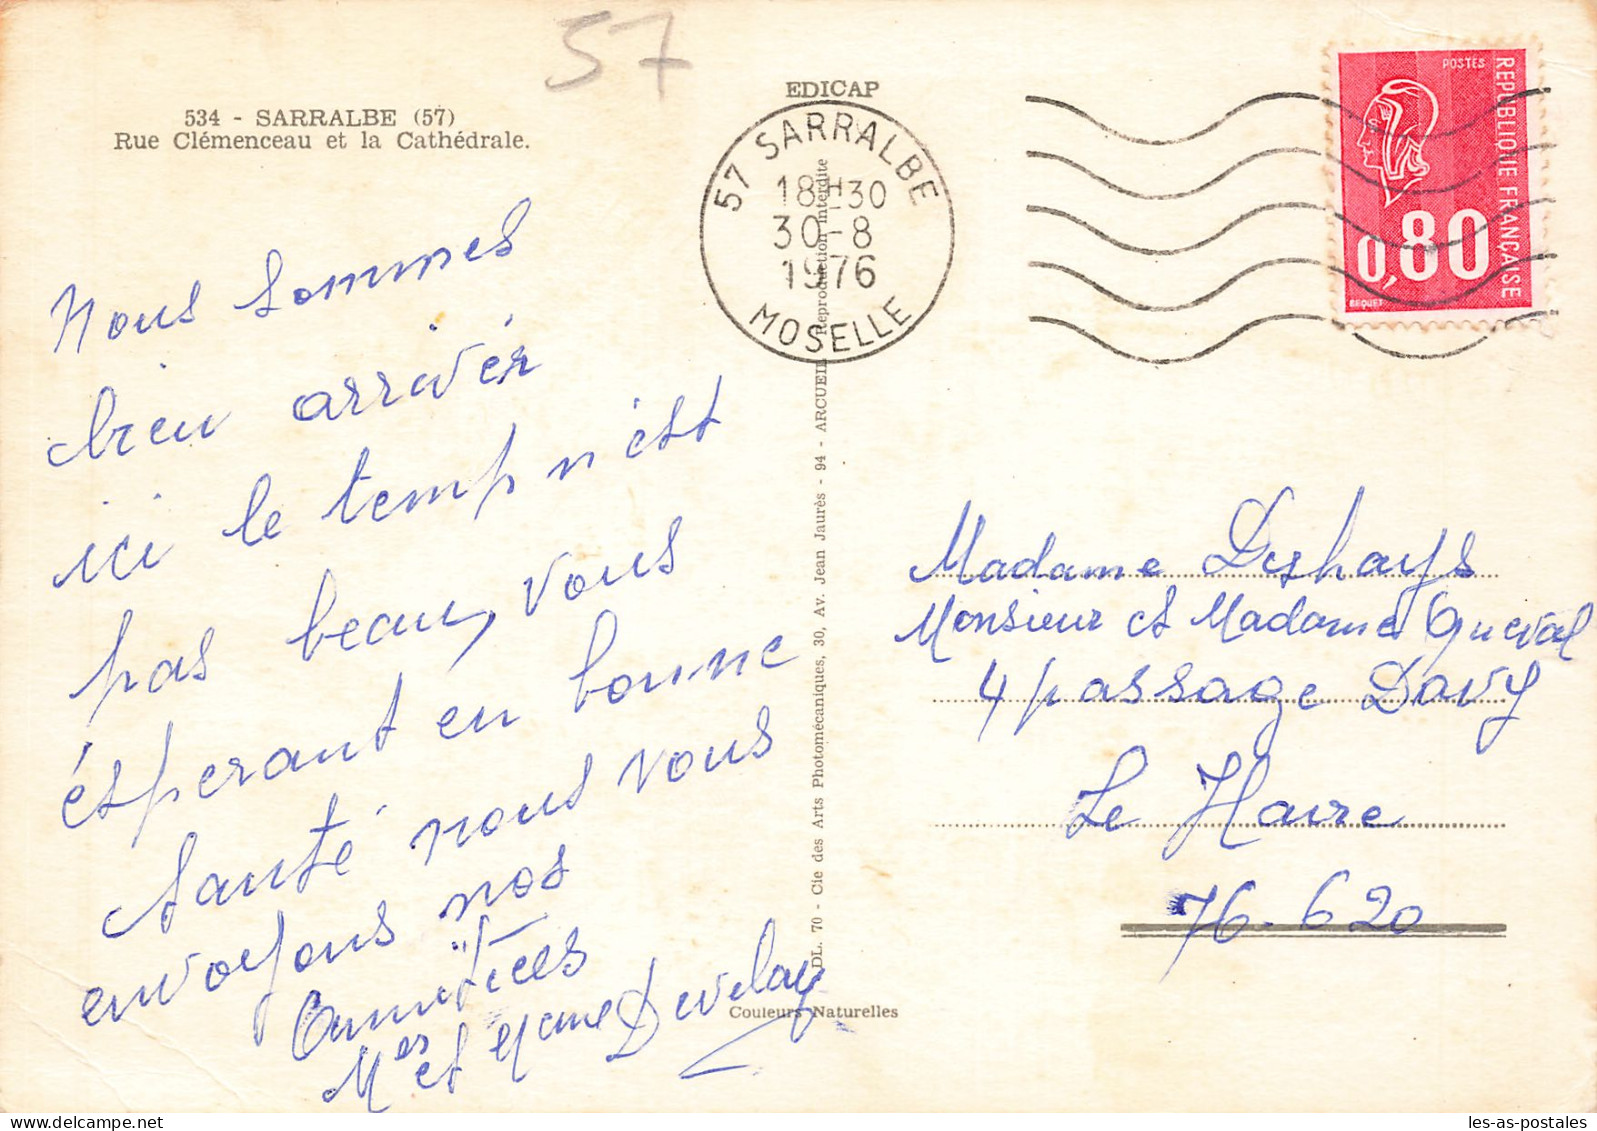 57
534 - SARRALBE (57)
Rue Clémenceau et la Cathédrale.
EDICAP
57 SARRALBE
18H30
30-8
1976
MOSELLE
POSTES
REPUBLIQUE FRANCAISE
0,80
BEQUET
Nous sommes
bien arrivér
ici le temp n'est
pas beau, vous
ésperant en bonne
santé nous vous
envoyons nos
Amitiées
Mer et Mme Develay
DL. 70 - Cie des Arts Photomécaniques, 30, Av. Jean Jaurès - 94 - ARCUEIL Reproduction interdite
Couleurs Naturelles
Madame Deshays
Monsieur et Madame Queval
4 passage Davy
Le Havre
76-620
les-as-postales